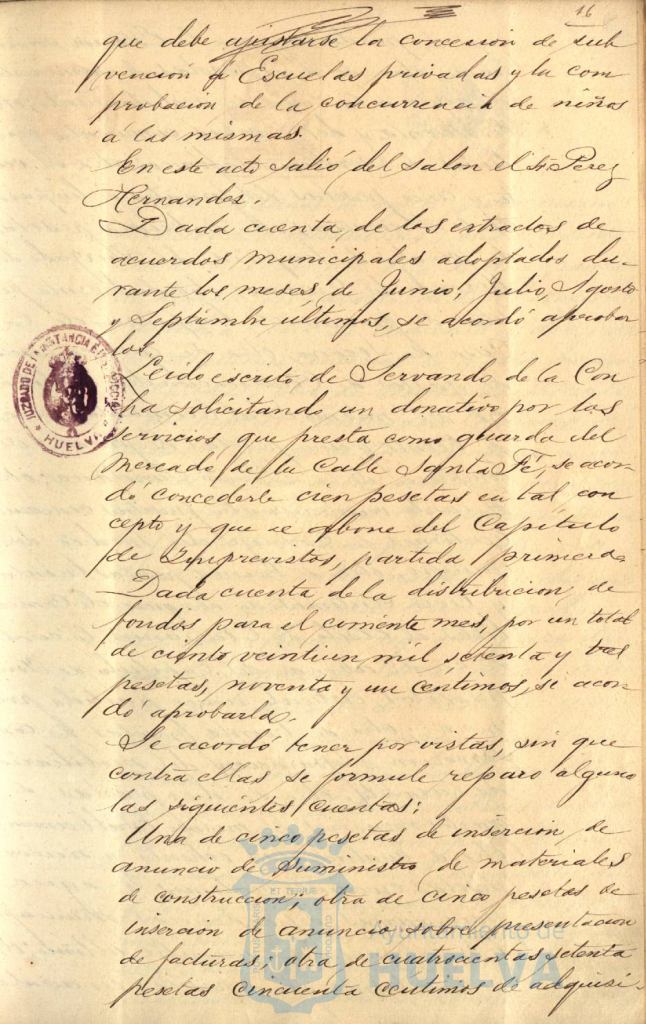 16
que debe ajustarse la concesion de sub
vencion á Escuelas privadas y la com
probacion de la concurrencia de niños
á las mismas.
En este acto salió del salon el Sr. Perez
Hernandez.
Dada cuenta de los extractos de
acuerdos municipales adoptados du-
rante los meses de Junio, Julio, Agosto
y Septiembre ultimos, se acordó aprobar
los.
Leido escrito de Servando de la Con
cha solicitando un donativo por los
servicios que presta como guarda del
mercado de la Calle Santa Fé, se acor-
dó concederle cien pesetas en tal con
cepto y que se abone del Capítulo
de Imprevistos, partida primera.
Dada cuenta de la distribucion de
fondos para el corriente mes, por un total
de ciento veintiun mil, setenta y tres
pesetas, noventa y un centimos, se acor-
dó aprobarla.
Se acordó tener por vistas, sin que
contra ellas se formule reparo alguno
las siguientes cuentas:
Una de cinco pesetas de insercion de
anuncio de suministro de materiales
de construccion; otra de cinco pesetas de
insercion de anuncio sobre presentacion
de facturas; otra de cuatrocientas setenta
pesetas cincuenta centimos de adquisi-
JUZGADO DE 1ª INSTANCIA E INSTRUCCION
HUELVA
Ayuntamiento de
HUELVA